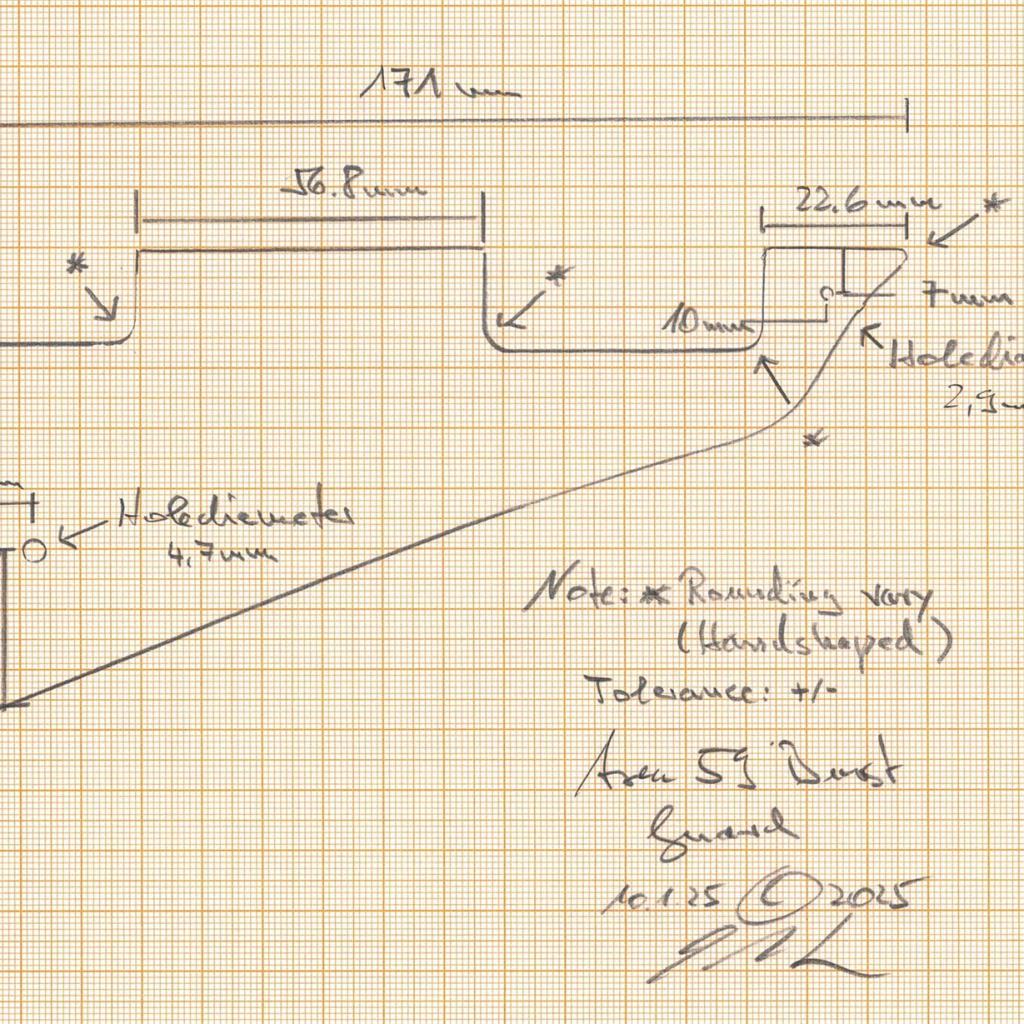 171 mm
56.8mm
22.6 mm
*
*
*
7mm
10mm
Holedia
2,9m
*
Holediameter
4,7mm
Note: * Rounding vary
(Handshaped)
Tolerance: +/-
Area 59 Burst
Guard
10.1.25 © 2025